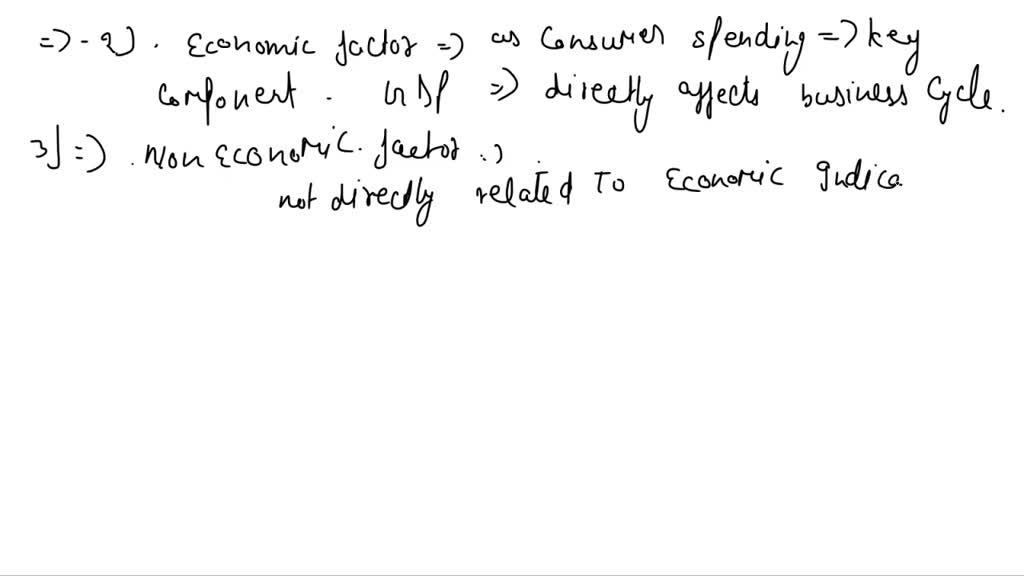 => - 2) . Economic factor => as Consumer spending => key
component . GDP => directly affects business Cycle.
3) => . Non Economic . factor .
not directly related To Economic Indica